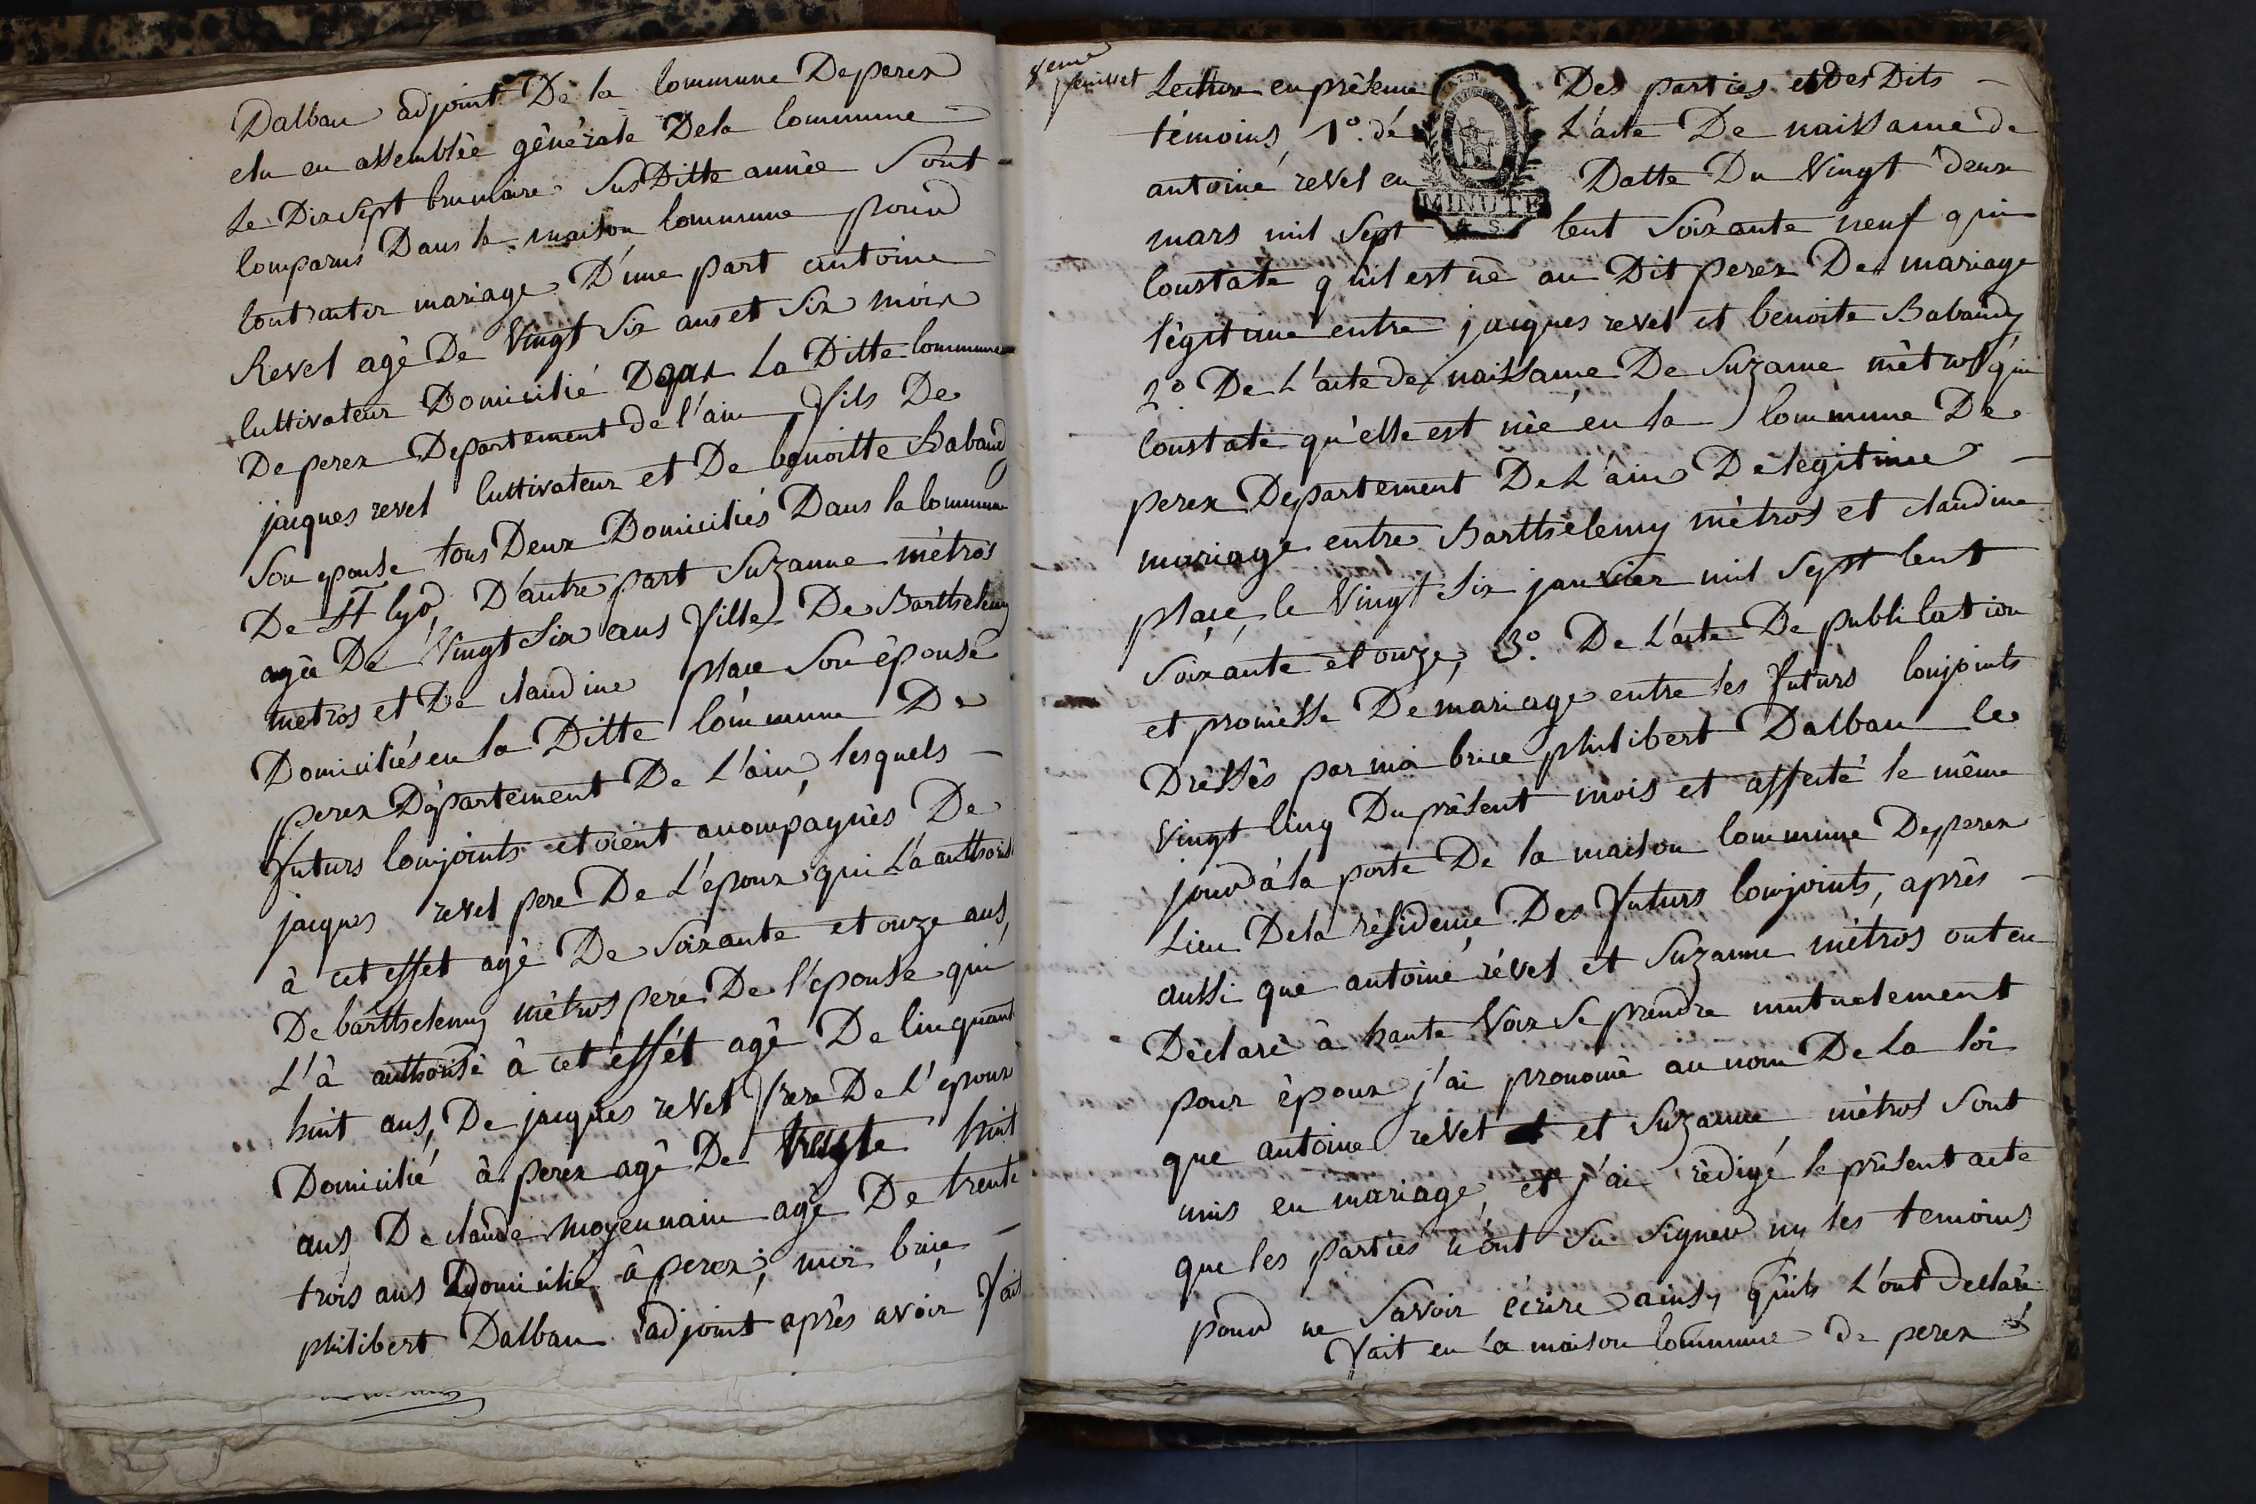 Dalban adjoint De la Commune De perex
elu en assemblée générale De la Commune
Le Dix sept brumaire Sus Ditte année Sont
Comparus Dans la maison Commune pour
Contracter mariage D'une part antoine
Revel agé De Vingt Six ans et Six mois
Cultivateur Domicilié Dans La Ditte Commune
De perex Departement de l'ain fils De
jacques revel Cultivateur et De benoitte Babaud
Son epouse tous Deux Domiciliés Dans la Commune
De St Cyr, D'autre part Suzanne métros
agée De Vingt Six ans fille De Barthelemy
metros et De claudine place Son épouse
Domiciliés en la Ditte Commune De
perex Département De L'ain, lesquels
futurs Conjoints etoient accompagnés De
jacques revel pere De L'epoux qui L'a authorisé
à cet effet agé De Soixante et onze ans,
De barthelemy métros pere De l'épouse qui
L'à authorisé à cet éffét agé De Cinquante
huit ans, De jacques revel frere De L'epoux
Domicilié à perex agé De trente huit
ans De claude moyennain agé De trente
trois ans Domicilié à perex; moi brice
philibert Dalban adjoint après avoir fait
8eme
feuillet
Lecture en présence Des parties et Des Dits
témoins, 1°. dé L'acte De naissance de
antoine revel en Datte Du Vingt Deux
mars mil Sept Cent Soixante neuf qui
Constate qu'il est né au Dit perex De mariage
légitime entre jacques revel et benoite Babaudy
2° De L'acte de naissance De Suzanne métros qui
Constate qu'elle est née en la Commune De
perex Departement De L'ain De legitime
mariage entre Barthelemy métros et claudine
place, le Vingt Six janvier mil Sept Cent
Soixante et onze, 3°. De L'acte De publication
et promesse De mariage entre les futurs Conjoints
Dréssés par moi brice philibert Dalban le
Vingt Cinq Du présent mois et affecté le même
jour à la porte De la maison Commune De perex
Lieu De la résidence Des futurs Conjoints, après
aussi que antoine révet et Suzanne métros ont eu
Déclaré à haute Voix Se prendre mutuelement
pour époux j'ai prononcé au nom De La loi
que antoine revet et Suzanne métros Sont
unis en mariage, et j'ai rédigé le présent acte
que les parties n'ont Su Signer ny les temoins
pour ne Savoir écrire ainsy qu'ils L'ont declaré
fait en La maison Commune de perex
MINUTE